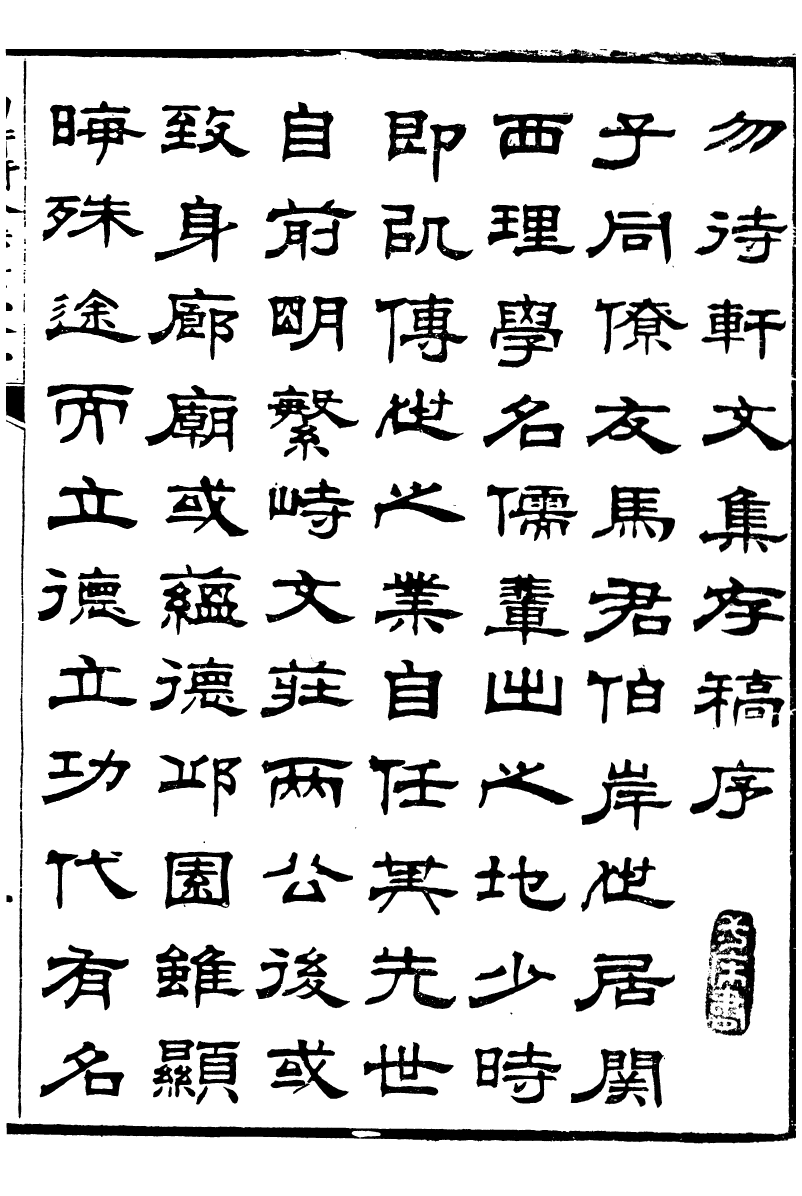 勿待軒文集存稿序
子同僚友馬君伯岸世居関
西理學名儒輩出之地少時
即凯傳世之業自任其先世
自前明繫峙文莊兩公後或
致身廊廟或蘊德邱園雖顯
晦殊途而立德立功代有名